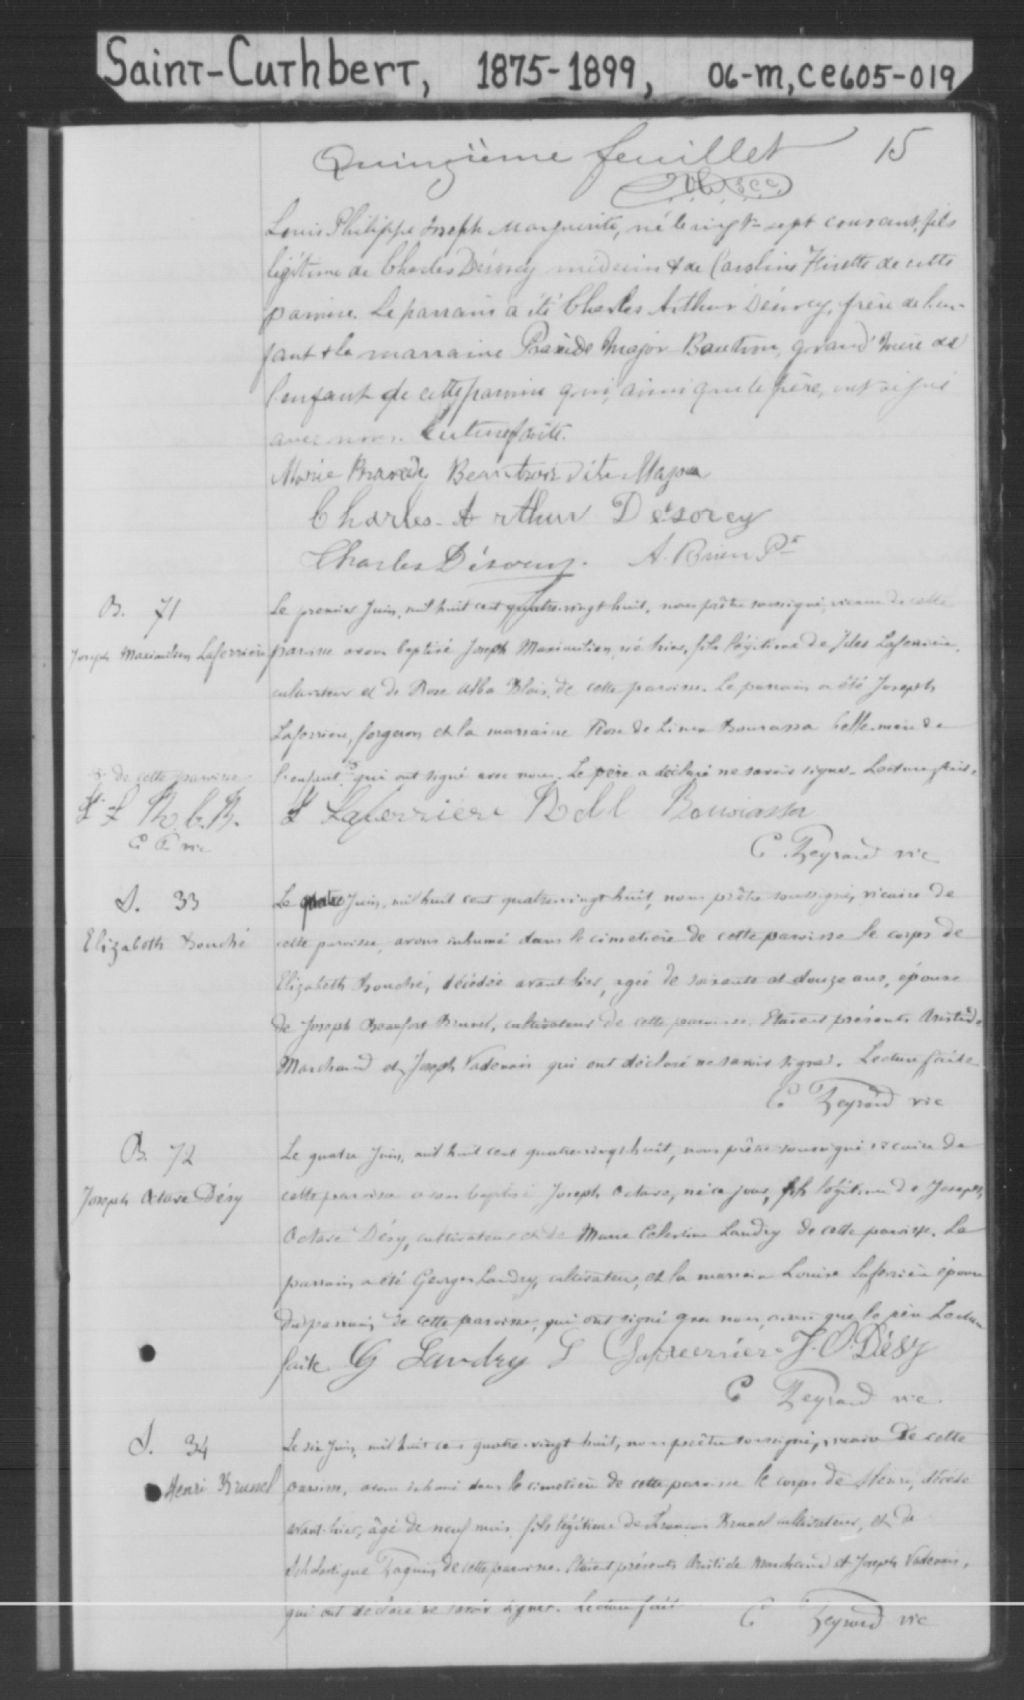 Saint-Cuthbert, 1875-1899, 06-M, CE605-019
Quinzième feuillet 15
Louis Philippe Joseph Marguerite, né le vingt-sept courant, fils
légitime de Charles Désorcy médecin & de Caroline de cette
paroisse. Le parrain a été Charles Arthur Désorcy, frère de l'en-
fant & la marraine Major Beautron, grand'mère de
l'enfant de cette paroisse qui, ainsi que le père, ont signé
avec nous. Lecture faite.
Marie Beautron dite Major
Charles-Arthur Désorcy
Charles Désorcy. A. Brien Ptr
B. 71
Joseph Maximilien Laferrière
Le premier Juin, mil huit cent quatre-vingt huit, nous prêtre soussigné, vicaire de cette
paroisse avons baptisé Joseph Maximilien, né hier, fils légitime de Jules Laferrière,
cultivateur et de Rose Alba Blais, de cette paroisse. Le parrain a été Joseph
Laferrière, forgeron et la marraine Rose de Lima Bourassa belle-mère de
l'enfant qui ont signé avec nous. Le père a déclaré ne savoir signer. Lecture faite.
de cette paroisse
J. L. R. L. B.
C. P. vic
J Laferrière R de L Bourassa
C. Peyrard vic
S. 33
Elizabeth Bouché
Le quatre Juin, mil huit cent quatre-vingt huit, nous prêtre soussigné, vicaire de
cette paroisse, avons inhumé dans le cimetière de cette paroisse le corps de
Elizabeth Bouché, décédée avant hier, agée de soixante et douze ans, épouse
de Joseph Brunel, cultivateur de cette paroisse. Etaient présents Aristide
Marchand et Joseph Vadenais qui ont déclaré ne savoir signer. Lecture faite
C Peyrard vic
B. 72
Joseph Octave Désy
Le quatre Juin, mil huit cent quatre-vingt huit, nous prêtre soussigné vicaire de
cette paroisse avons baptisé Joseph Octave, né ce jour, fils légitime de Joseph
Octave Désy, cultivateur et de Marie Célestine Landry de cette paroisse. Le
parrain a été Georges Landry, cultivateur, et la marraine Louise Laferrière épouse
du parrain de cette paroisse, qui ont signé avec nous, ainsi que le père Lecture
faite G Landry L Laferrière J. O. Désy
C Peyrard vic
S. 34
Henri Brunel
Le six Juin, mil huit cent quatre-vingt huit, nous prêtre soussigné, vicaire de cette
paroisse, avons inhumé dans le cimetière de cette paroisse le corps de Henri, décédé
avant-hier, âgé de neuf mois, fils légitime de François Brunel cultivateur, et de
Scholastique de cette paroisse. Etaient présents Aristide Marchand et Joseph Vadenais,
qui ont déclaré ne savoir signer. Lecture faite
C Peyrard vic